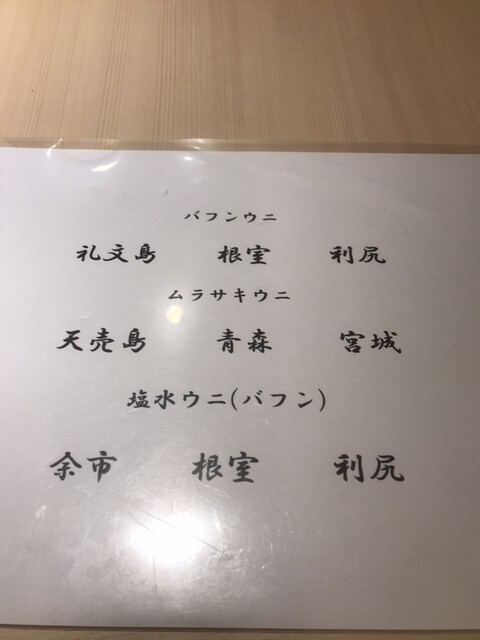 バフンウニ
礼文島 根室 利尻
ムラサキウニ
天売島 青森 宮城
塩水ウニ(バフン)
余市 根室 利尻